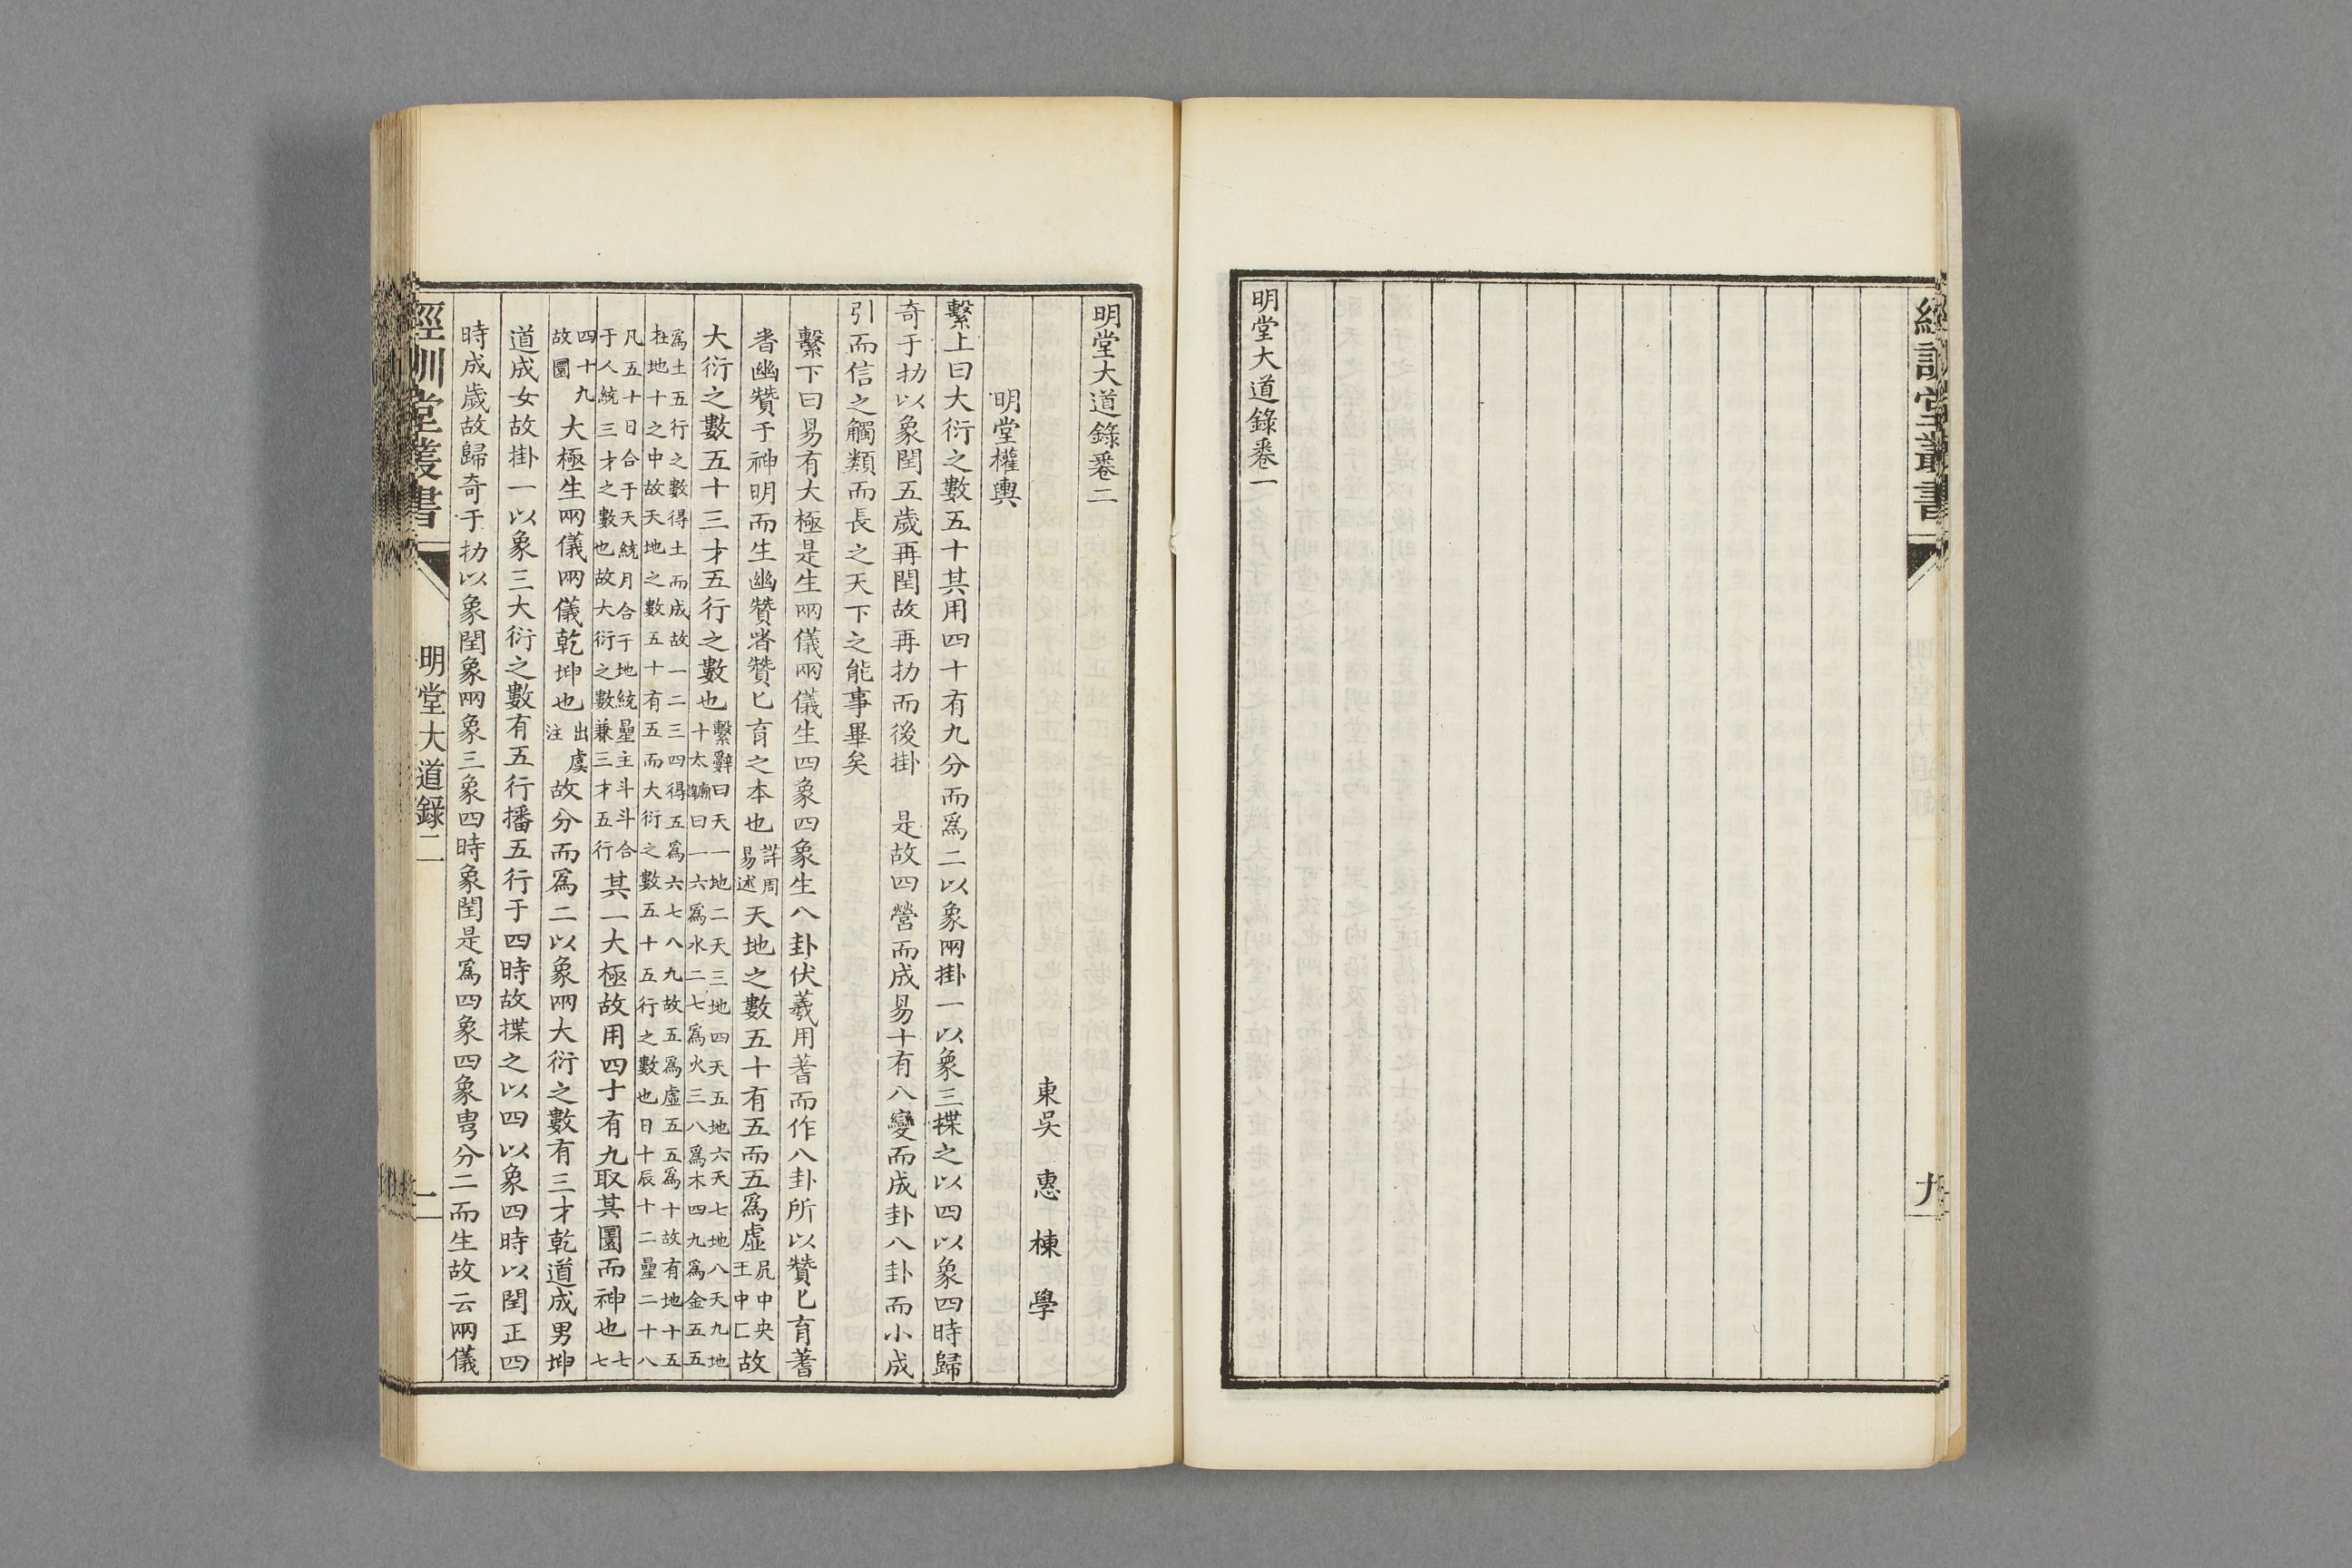 經訓堂叢書
九
明堂大道錄卷一
明堂大道錄卷二
東吳 惠 棟 學
明堂權輿
繫上曰大衍之數五十其用四十有九分而爲二以象网掛一以象三揲之以四以象四時歸
奇于扐以象閏五歲再閏故再扐而後掛 是故四營而成易十有八變而成卦八卦而小成
引而信之觸類而長之天下之能事畢矣
繫下曰易有大極是生网儀网儀生四象四象生八卦伏羲用蓍而作八卦所以贊匕育蓍
者幽贊于神明而生幽贊者贊匕育之本也詳周易述天地之數五十有五而五爲虛凥中央王中匚故
大衍之數五十三才五行之數也繫辭曰天一地二天三地四天五地六天七地八天九地十太曰一六爲水二七爲火三八爲木四九爲金五五
爲土五行之數得土而成故一二三四得五爲六七八九故五爲虛五五爲十故有地十五在地十之中故天地之數五十有五而大衍之數五十五行之數也日十辰十二曐二十八
凡五十日合于天統月合于地統曐主斗斗合于人統三才之數也故大衍之數兼三才五行其一大極故用四十有九取其圜而神也七七
四十九故圜大極生网儀网儀乾坤也出虞注故分而爲二以象网大衍之數有三才乾道成男坤
道成女故掛一以象三大衍之數有五行播五行于四時故揲之以四以象四時以閏正四
時成歲故歸奇于扐以象閏象网象三象四時象閏是爲四象四象㽕分二而生故云网儀
經訓堂叢書
明堂大道錄二
一